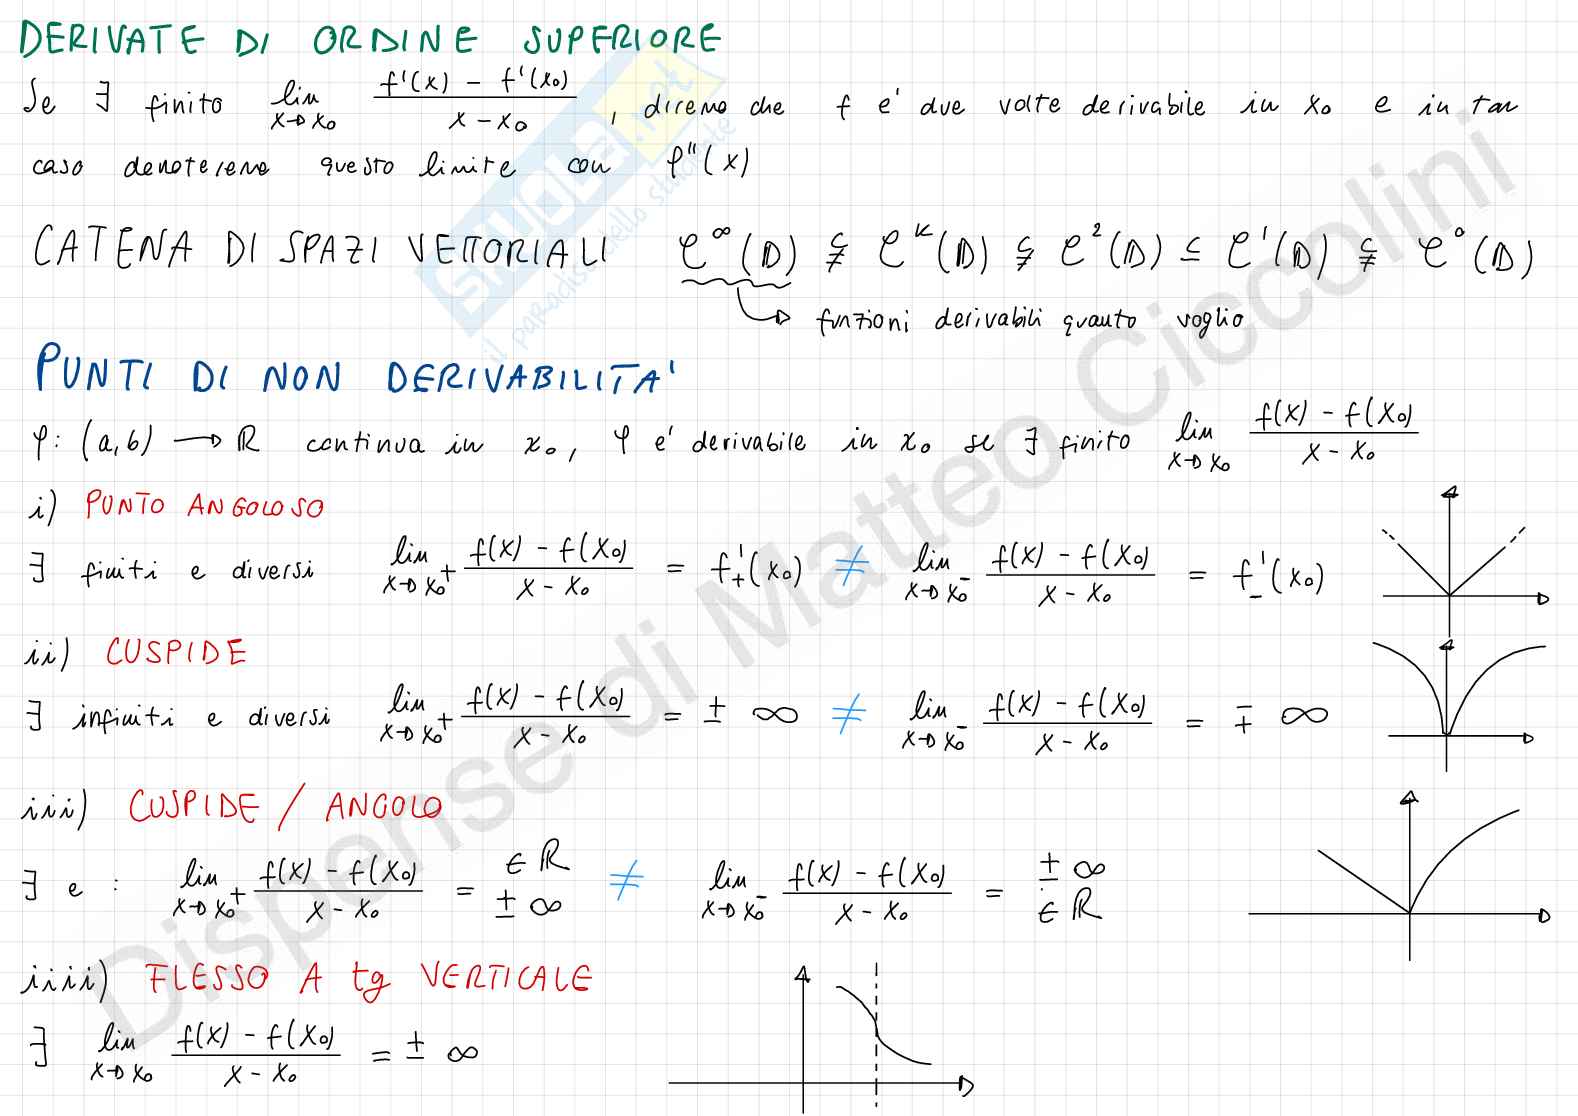 DERIVATE DI ORDINE SUPERIORE
Se ∃ finito lim x→x₀ (f'(x) - f'(x₀))/(x - x₀), diremo che f e' due volte derivabile in x₀ e in tal
caso denoteremo questo limite con f''(x)
CATENA DI SPAZI VETTORIALI C^∞(D) ⊊ C^k(D) ⊊ C²(D) ⊆ C¹(D) ⊊ C⁰(D)
→ funzioni derivabili quanto voglio
PUNTI DI NON DERIVABILITA'
f: (a,b) → ℝ continua in x₀, f e' derivabile in x₀ se ∃ finito lim x→x₀ (f(x) - f(x₀))/(x - x₀)
i) PUNTO ANGOLOSO
∃ finiti e diversi lim x→x₀⁺ (f(x) - f(x₀))/(x - x₀) = f'₊(x₀) ≠ lim x→x₀⁻ (f(x) - f(x₀))/(x - x₀) = f'₋(x₀)
ii) CUSPIDE
∃ infiniti e diversi lim x→x₀⁺ (f(x) - f(x₀))/(x - x₀) = ± ∞ ≠ lim x→x₀⁻ (f(x) - f(x₀))/(x - x₀) = ∓ ∞
iii) CUSPIDE / ANGOLO
∃ e : lim x→x₀⁺ (f(x) - f(x₀))/(x - x₀) = ∈ ℝ ± ∞ ≠ lim x→x₀⁻ (f(x) - f(x₀))/(x - x₀) = ± ∞ ∈ ℝ
iiii) FLESSO A tg VERTICALE
∃ lim x→x₀ (f(x) - f(x₀))/(x - x₀) = ± ∞
Dispense di Matteo Ciccolini
skuola.net
il paradiso dello studente